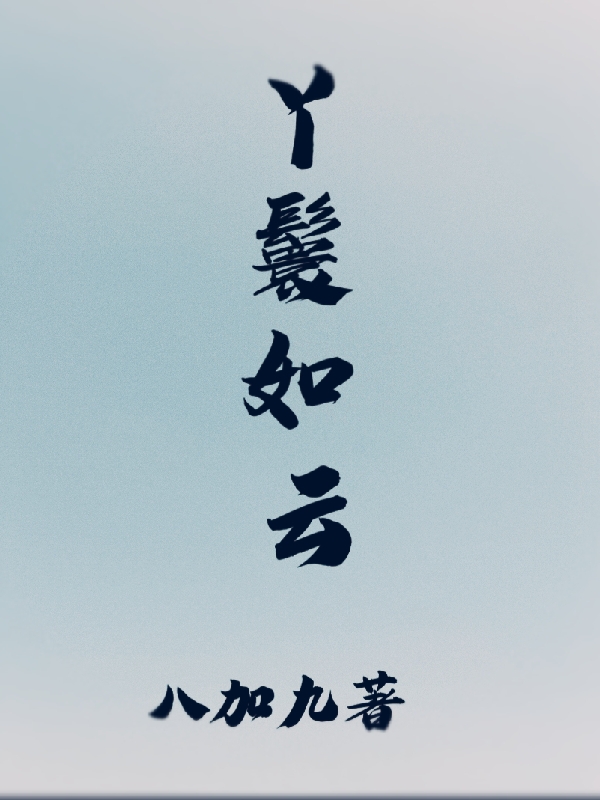 丫鬟如云
八加九著